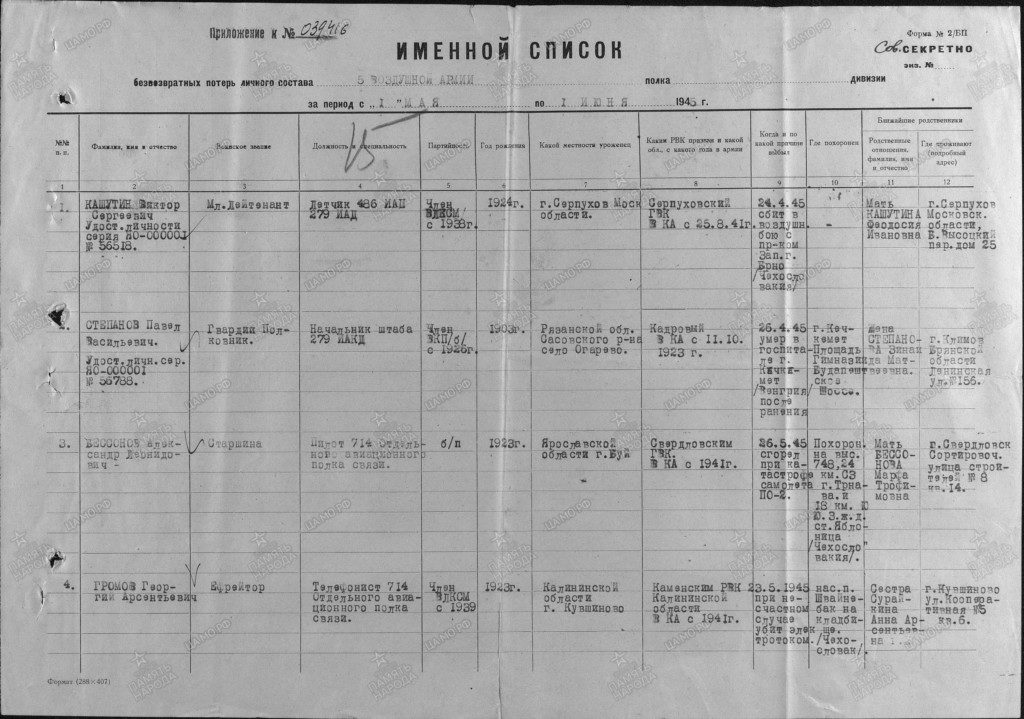 Приложение к № 039416
Форма № 2/БП
Сов. СЕКРЕТНО
экз. №
ИМЕННОЙ СПИСОК
безвозвратных потерь личного состава 5 ВОЗДУШНОЙ АРМИИ полка дивизии
за период с „1 " МАЯ по 1 ИЮНЯ 1945 г.
№№ п. п.
Фамилия, имя и отчество
Воинское звание
Должность и специальность
Партийность
Год рождения
Какой местности уроженец
Каким РВК призван и какой обл., с какого года в армии
Когда и по какой причине выбыл
Где похоронен
Ближайшие родственники
Родственные отношения, фамилия, имя и отчество
Где проживают (подробный адрес)
1 2 3 4 5 6 7 8 9 10 11 12
1.
КАШУТИН Виктор
Сергеевич
Удост.личности
серия ЯО-000001
№ 56518.
Мл.Лейтенант
Летчик 486 ИАП
279 ИАД
Член
ВЛКСМ
с 1938г.
1924г.
г.Серпухов Моск
области.
Серпуховский
ГВК
В КА с 25.8.41г.
24.4.45
сбит в
воздушн.
бою с
пр-ком
Зап.г.
Брно
/Чехосло
вакия/
-
Мать
КАШУТИНА
Феодосия
Ивановна
г.Серпухов
Московск.
области,
Б.Высоцкий
пер.дом 25
2.
СТЕПАНОВ Павел
Васильевич.
Удост.личн.сер.
ЯО-000001
№ 56788.
Гвардии Пол-
ковник.
Начальник штаба
279 ИАКД
Член
ВКП/б/
с 1926г.
1903г.
Рязанской обл.
Сасовского р-на
село Огарево.
Кадровый
В КА с 11.10.
1923 г.
26.4.45
умер в
госпита-
ле г.
Кечки-
мет
/Венгрия/
после
ранения
г.Кеч-
кемет
Площадь
Гимназии
Будапешт
ское
шоссе.
Жена
СТЕПАНО-
ВА Зинаи
да Мат-
веевна.
г.Климов
Брянской
области
Ленинская
ул.№156.
3.
БЕССОНОВ Алек-
сандр Леонидо-
вич -
Старшина
Пилот 714 Отдель-
ного авиационного
полка связи.
б/п
1923г.
Ярославской
области г.Буй
Свердловским
ГВК.
В КА с 1941г.
26.5.45
сгорел
при ка-
тастрофе
самолета
ПО-2.
Похорон.
на выс.
748,24
км. СЗ
г.Трна-
ва.и
18 км. Ю
Ю.З.ж.д.
ст.Ябло-
ница
/Чехосло"
вакия/.
Мать
БЕССО-
НОВА
Марфа
Трофи-
мовна
г.Свердловск
Сортировоч.
улица строи-
телей № 8
кв.14.
4.
ГРОМОВ Геор-
гий Арсентьевич
Ефрейтор
Телефонист 714
Отдельного авиа-
ционного полка
связи.
Член
ВЛКСМ
с 1939
1923г.
Калининской
области
г. Кувшиново
Каменским РВК
Калининской
области
В КА с 1941г.
23.5.1945
при не-
счастном
случае
убит элек
тротоком.
нас.п.
Швайне-
бак на
кладби-
ще.
/Чехо-
словак/.
Сестра
Сурай-
кина
Анна Ар-
сентьев-
на
г.Кувшиново
ул.Коопера-
тивная №5
кв.6.
Формат (288×407)
ЦАМО.РФ
ПАМЯТЬ НАРОДА